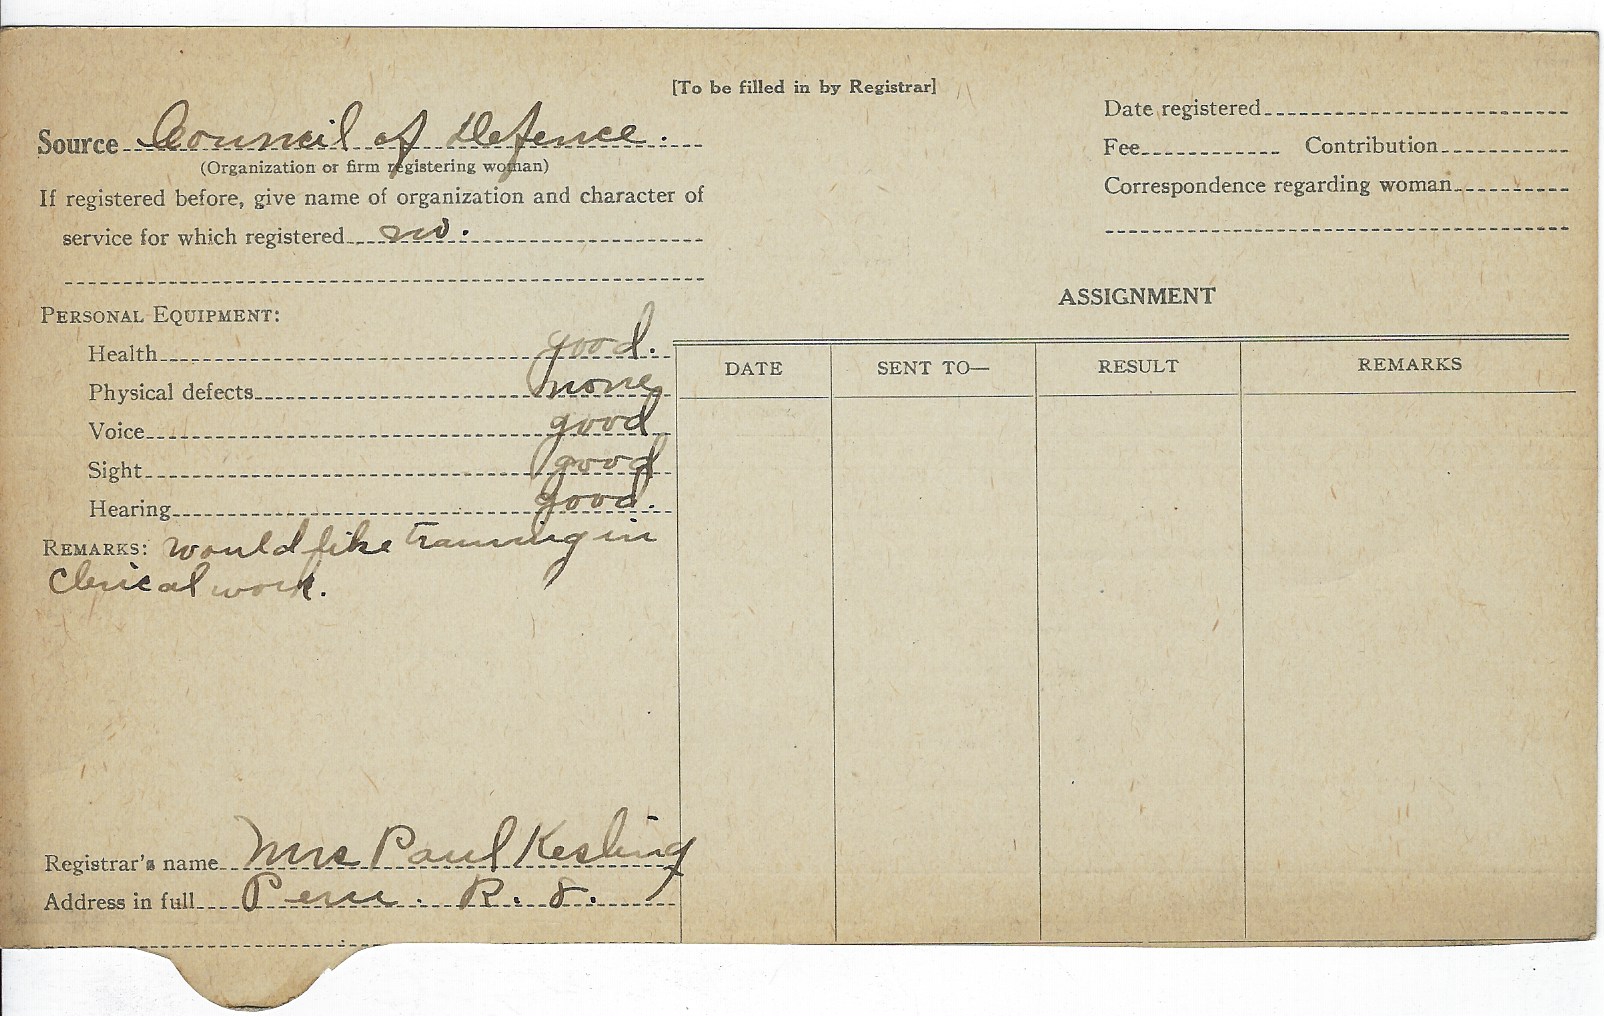 [To be filled in by Registrar]
Source Council of Defence.
(Organization or firm registering woman)
If registered before, give name of organization and character of
service for which registered no.
PERSONAL EQUIPMENT:
Health good.
Physical defects none
Voice good
Sight good
Hearing good.
REMARKS: would like training in
clerical work.
Registrar's name Mrs Paul Kesling
Address in full Peru. R. 8.
Date registered
Fee Contribution
Correspondence regarding woman
ASSIGNMENT
DATE SENT TO— RESULT REMARKS